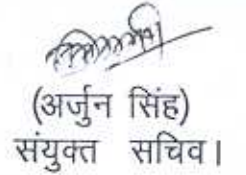 (अर्जुन सिंह)
संयुक्त सचिव।